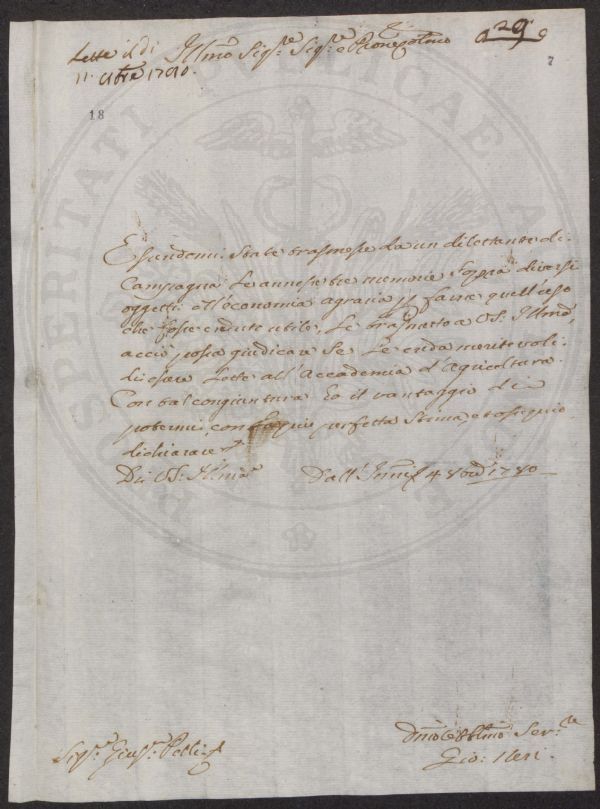 Lette il dì
11. 8bre 1780.
Illmo Sigre Sigre e Prone Colmo
29
7
18
PROSPERITATI PUBLICAE AU
Essendomi state trasmesse da un dilettante di
Campagna le annesse tre memorie sopra diversi
oggetti dell'economia agraria p farne quell'uso
che fosse creduto utile, Le trasmetto a VS. Illma,
acciò possa giudicare se Le creda meritevoli
di esser Lette all'Accademia d'Agricoltura.
Con tal congiuntura ho il vantaggio di
potermi con perfetta stima, e ossequio
dichiarare
Di VS. Illma
Dall' 4 1780
Sigr. Gius. Pelli
Dmo Obblmo Serre
Gio: Neri